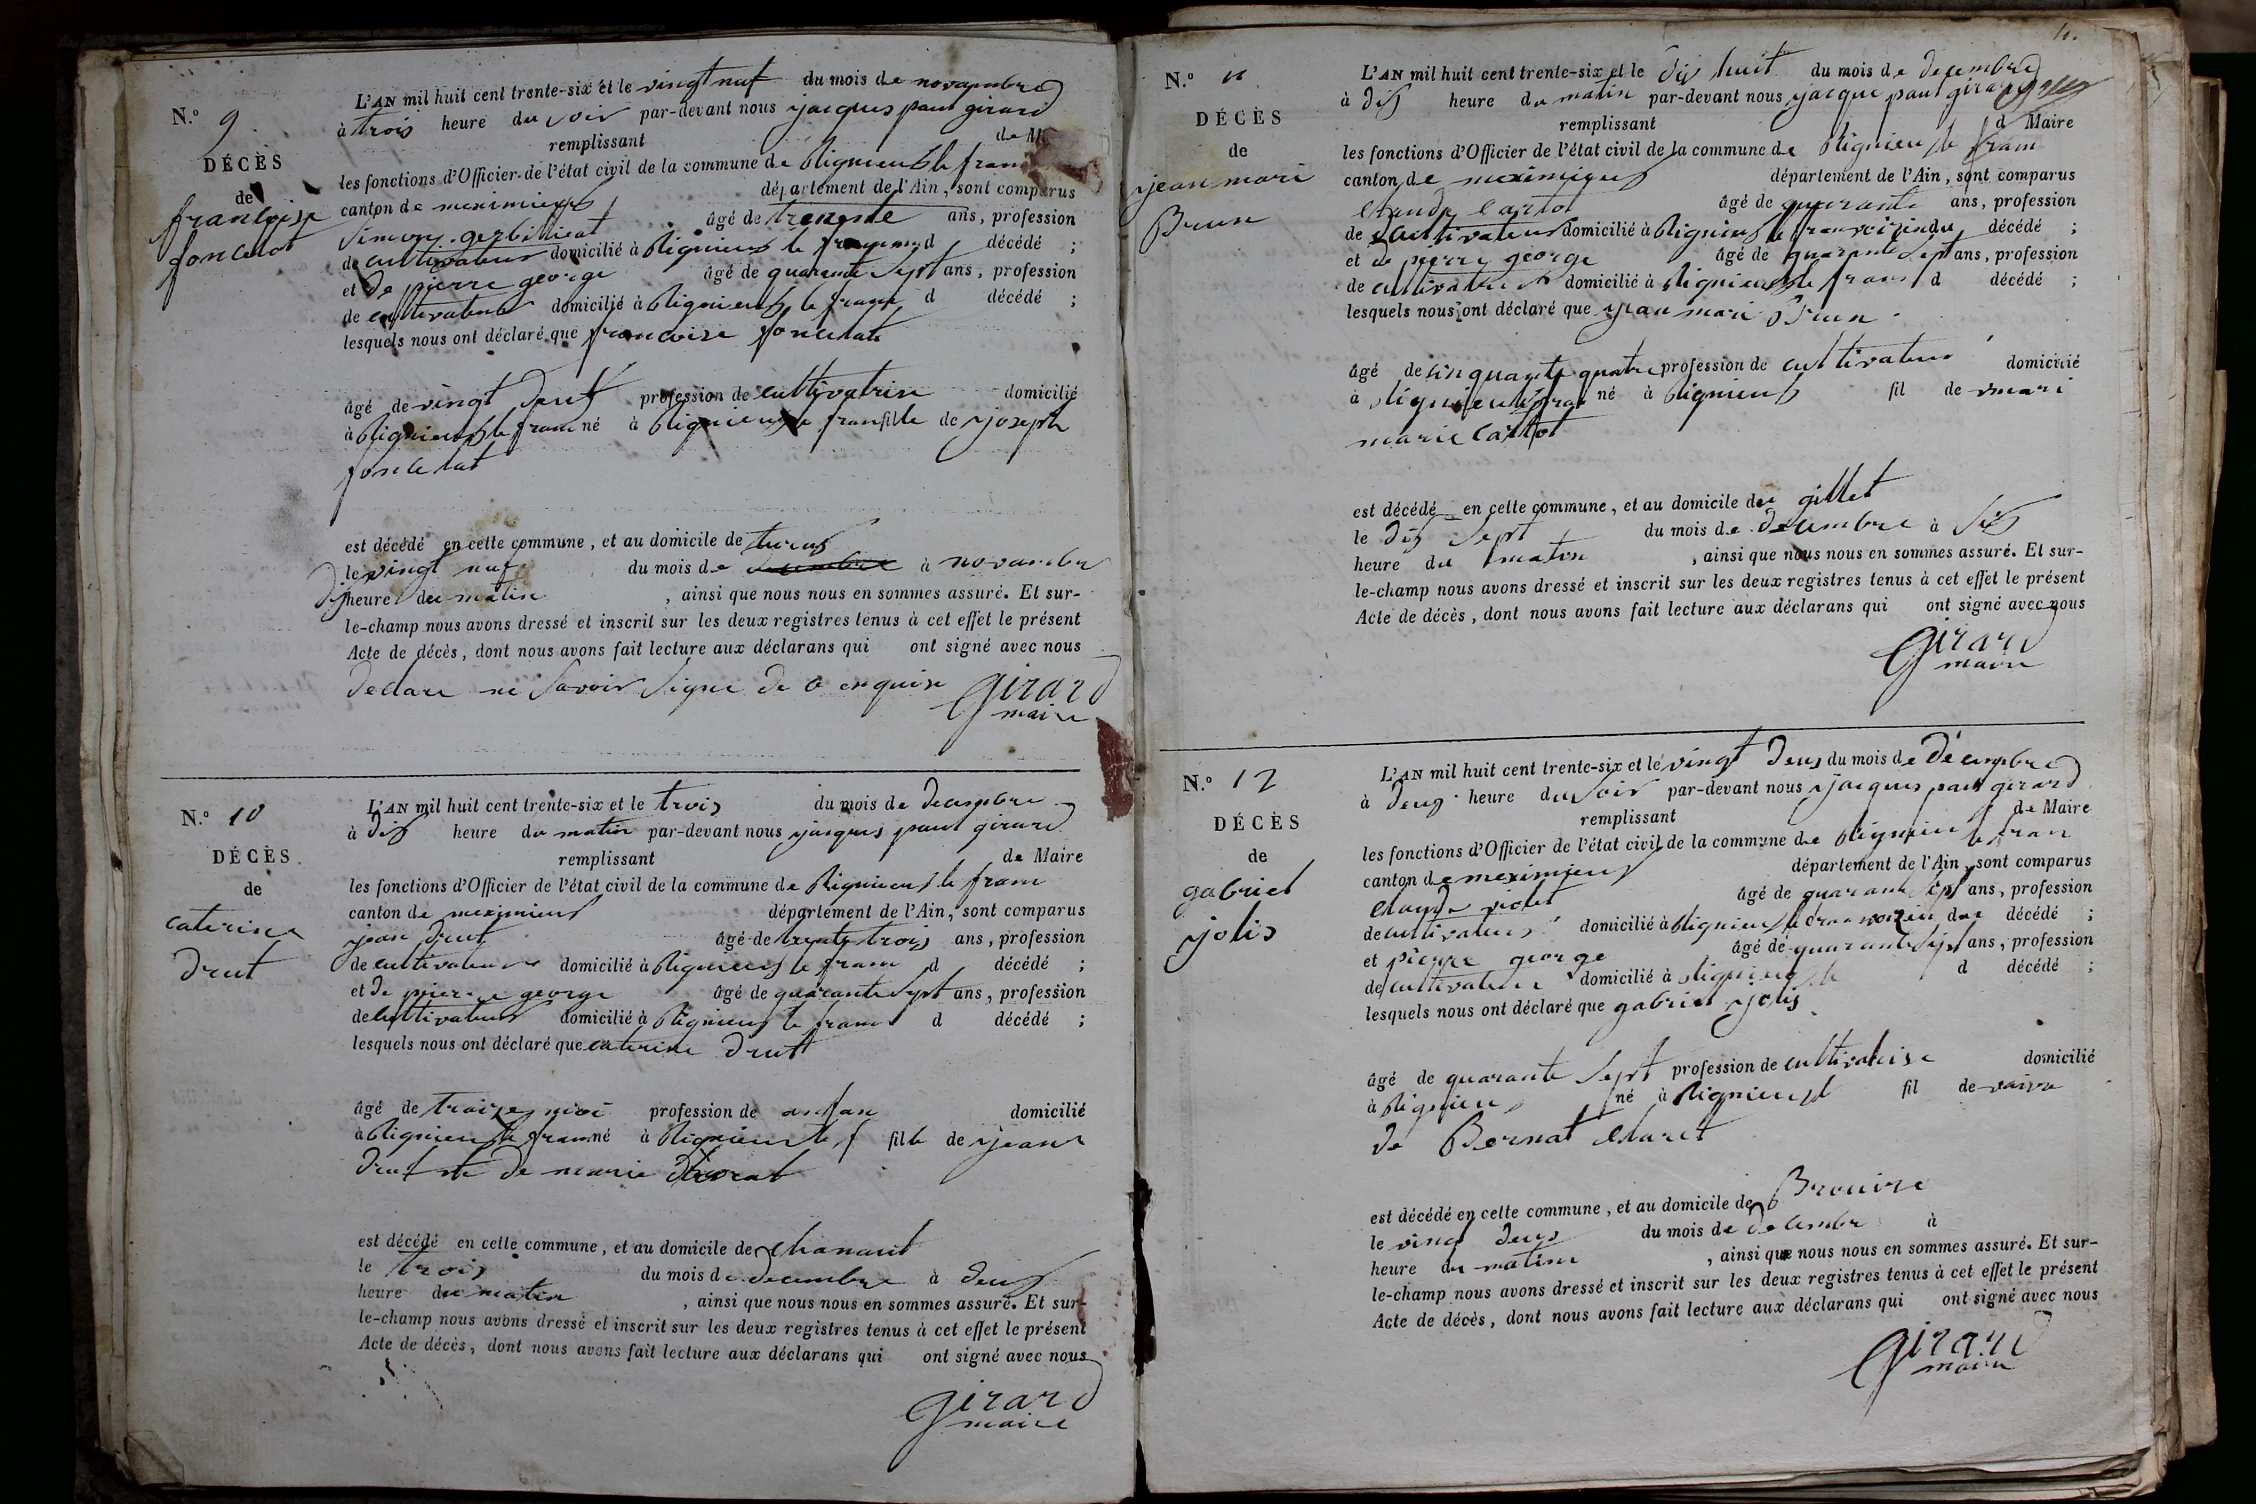 N.º 9
DÉCÈS
de
francoise
foncelat
L'AN mil huit cent trente-six et le vingt nuf du mois de novambre
à trois heure du soir par-devant nous jacques paul girard
remplissant de M
les fonctions d'Officier de l'état civil de la commune de Rignieux le fran
canton de meximieux département de l'Ain, sont comparus
Simon gerbillieat âgé de trente ans, profession
de cultivateur domicilié à Rignieux le fran d décédé ;
et de pierre george âgé de quarante sept ans, profession
de cultivateur domicilié à Rignieux le franc d décédé ;
lesquels nous ont déclaré que francoise foncelat
âgé de vingt deux profession de cultivatrise domicilié
à Rignieux le franc né à Rignieux le fran fille de joseph
foncelat
est décédé en cette commune, et au domicile de
le vingt nuf du mois de à novambre
dix heure du matin , ainsi que nous nous en sommes assuré. Et sur-
le-champ nous avons dressé et inscrit sur les deux registres tenus à cet effet le présent
Acte de décès, dont nous avons fait lecture aux déclarans qui ont signé avec nous
declare ne Savoir Signe de enquise girard
maire
N.º 10
DÉCÈS
de
caterine
drut
L'AN mil huit cent trente-six et le trois du mois de decembre
à dix heure du matin par-devant nous jacques paul girard
remplissant de Maire
les fonctions d'Officier de l'état civil de la commune de Rignieux le franc
canton de meximieux département de l'Ain, sont comparus
jean drut âgé de trente trois ans, profession
de cultivateur domicilié à Rignieux le franc d décédé ;
et de pierre george âgé de quarante sept ans, profession
de cultivateur domicilié à Rignieux le franc d décédé ;
lesquels nous ont déclaré que caterine drut
âgé de traize moi profession de anfan domicilié
à Rignieux le franc né à Rignieux le f fille de jean
drut et de marie
est décédé en cette commune, et au domicile de chanant
le trois du mois de decembre à deux
heure du matin , ainsi que nous nous en sommes assuré. Et sur-
le-champ nous avons dressé et inscrit sur les deux registres tenus à cet effet le présent
Acte de décès, dont nous avons fait lecture aux déclarans qui ont signé avec nous
girard
maire
N.º 11
DÉCÈS
de
jean mari
Brun
L'AN mil huit cent trente-six et le dix huit du mois de decembre
à dix heure du matin par-devant nous jacque paul girard
remplissant d Maire
les fonctions d'Officier de l'état civil de la commune de Rignieux le fran
canton de meximieux département de l'Ain, sont comparus
Claude Cartot âgé de quarante ans, profession
de cultivateur domicilié à Rignieux le fran voizin du décédé ;
et de pierre george âgé de quarante sept ans, profession
de cultivateur domicilié à Rignieux le franc d décédé ;
lesquels nous ont déclaré que jean mari Brun
âgé de sinquante quatre profession de cultivateur domicilié
à Rignieux le fran né à Rignieux fil de mari
marie Cartot
est décédé en cette commune, et au domicile de gillet
le dix Sept du mois de decembre à Six
heure du matin , ainsi que nous nous en sommes assuré. Et sur-
le-champ nous avons dressé et inscrit sur les deux registres tenus à cet effet le présent
Acte de décès, dont nous avons fait lecture aux déclarans qui ont signé avec nous
girard
maire
N.º 12
DÉCÈS
de
gabriel
jolis
L'AN mil huit cent trente-six et le vingt deux du mois de décembre
à deux heure du soir par-devant nous jacques paul girard
remplissant de Maire
les fonctions d'Officier de l'état civil de la commune de Rignieux le fran
canton de meximieux département de l'Ain, sont comparus
Claude violet âgé de quarante six ans, profession
de cultivateur domicilié à Rignieux le fran voizin du décédé ;
et pierre george âgé de quarante sept ans, profession
de cultivateur domicilié à Rignieux le d décédé ;
lesquels nous ont déclaré que gabriel jolis
âgé de quarante Sept profession de cultivatrise domicilié
à Rignieux né à Rignieux fil de vaive
de Bernat Claret
est décédé en cette commune, et au domicile de Brouire
le vingt deux du mois de decembre à
heure du matin , ainsi que nous nous en sommes assuré. Et sur-
le-champ nous avons dressé et inscrit sur les deux registres tenus à cet effet le présent
Acte de décès, dont nous avons fait lecture aux déclarans qui ont signé avec nous
girard
maire